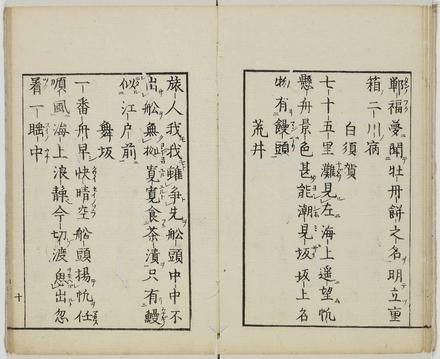 鄲福夢聞牡丹餅之名明立重
箱二川宿
白須賀
七十五里灘見左海上遥望帆
懸舟景色甚能潮見坂坂上名
物有饅頭
荒井
旅人我我雖争先船頭中中不
出船無拠寛寛食茶漬只有鰻
似江戸前
舞坂
一番舟早快晴空船頭揚帆任
順風海上浪静今切渡魚出忽
着一睡中
十